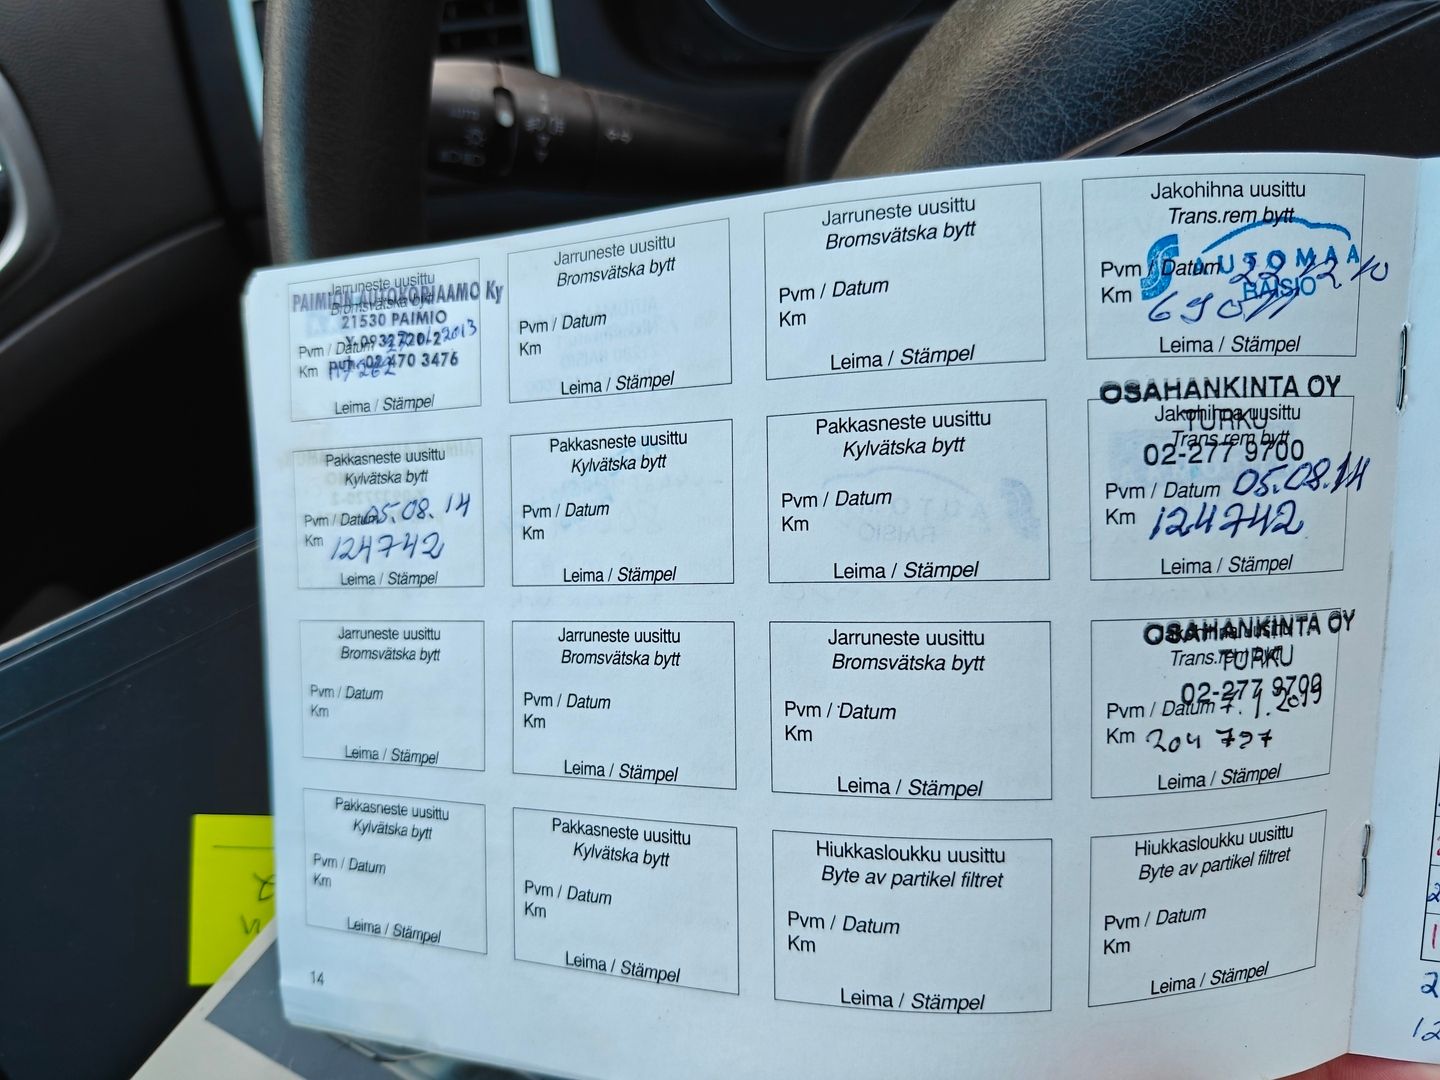 Jarruneste uusittu
Bromsvätska bytt
PAIMION AUTOKORJAAMO Ky
21530 PAIMIO
Y 0932720-2
Pvm / Datum
puh. 02 470 3476
Km
Leima / Stämpel
Jarruneste uusittu
Bromsvätska bytt
Pvm / Datum
Km
Leima / Stämpel
Jarruneste uusittu
Bromsvätska bytt
Pvm / Datum
Km
Leima / Stämpel
Jakohihna uusittu
Trans.rem bytt
AUTOMAA
RAISIO
Pvm / Datum 22.12.10
Km 69011
Leima / Stämpel
Pakkasneste uusittu
Kylvätska bytt
Pvm / Datum 05.08.14
Km 124742
Leima / Stämpel
Pakkasneste uusittu
Kylvätska bytt
Pvm / Datum
Km
Leima / Stämpel
Pakkasneste uusittu
Kylvätska bytt
Pvm / Datum
Km
Leima / Stämpel
OSAHANKINTA OY
TURKU
02-277 9700
Jakohihna uusittu
Trans.rem bytt
Pvm / Datum 05.08.14
Km 124742
Leima / Stämpel
Jarruneste uusittu
Bromsvätska bytt
Pvm / Datum
Km
Leima / Stämpel
Jarruneste uusittu
Bromsvätska bytt
Pvm / Datum
Km
Leima / Stämpel
Jarruneste uusittu
Bromsvätska bytt
Pvm / Datum
Km
Leima / Stämpel
OSAHANKINTA OY
TURKU
02-277 9700
Jakohihna uusittu
Trans.rem bytt
Pvm / Datum 7.1.2019
Km 204 797
Leima / Stämpel
Pakkasneste uusittu
Kylvätska bytt
Pvm / Datum
Km
Leima / Stämpel
Pakkasneste uusittu
Kylvätska bytt
Pvm / Datum
Km
Leima / Stämpel
Hiukkasloukku uusittu
Byte av partikel filtret
Pvm / Datum
Km
Leima / Stämpel
Hiukkasloukku uusittu
Byte av partikel filtret
Pvm / Datum
Km
Leima / Stämpel
14